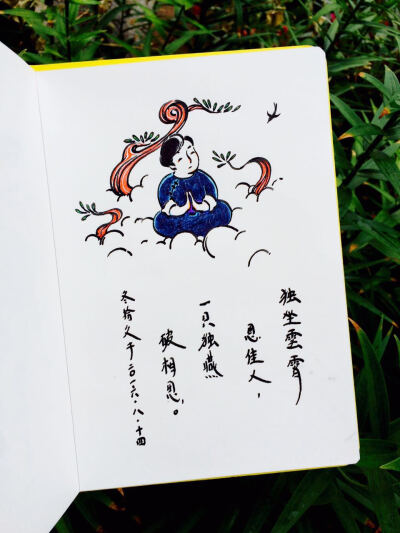 独坐雲霄
思佳人，
一只独燕
破相思。
冬拾久于二〇一六·八·十四